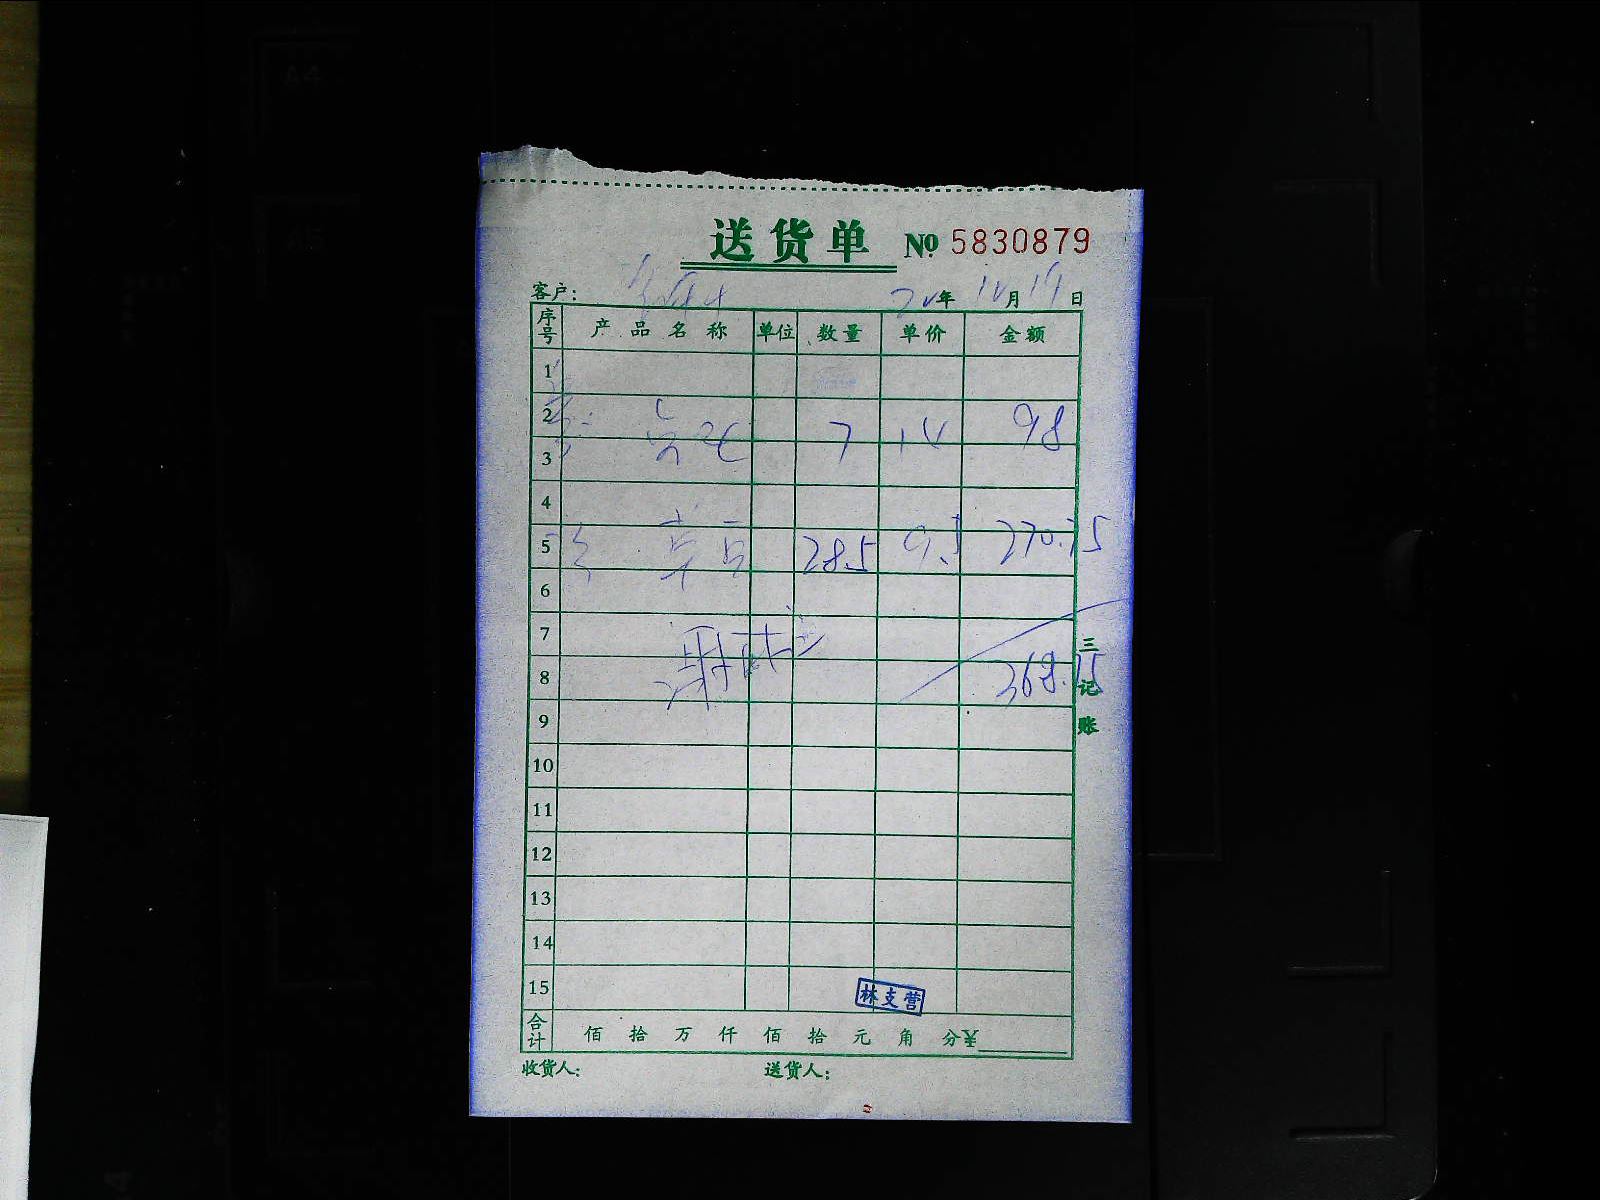 送货单 № 5830879
客户: 年 月 日
序号 产品名称 单位 数量 单价 金额
1
2 7 14 98
3
4
5 28.5 9.5 270.75
6
7
8 368.75
9
10
11
12
13
14
15
林支营
合计 佰 拾 万 仟 佰 拾 元 角 分¥
收货人: 送货人:
三 记 账